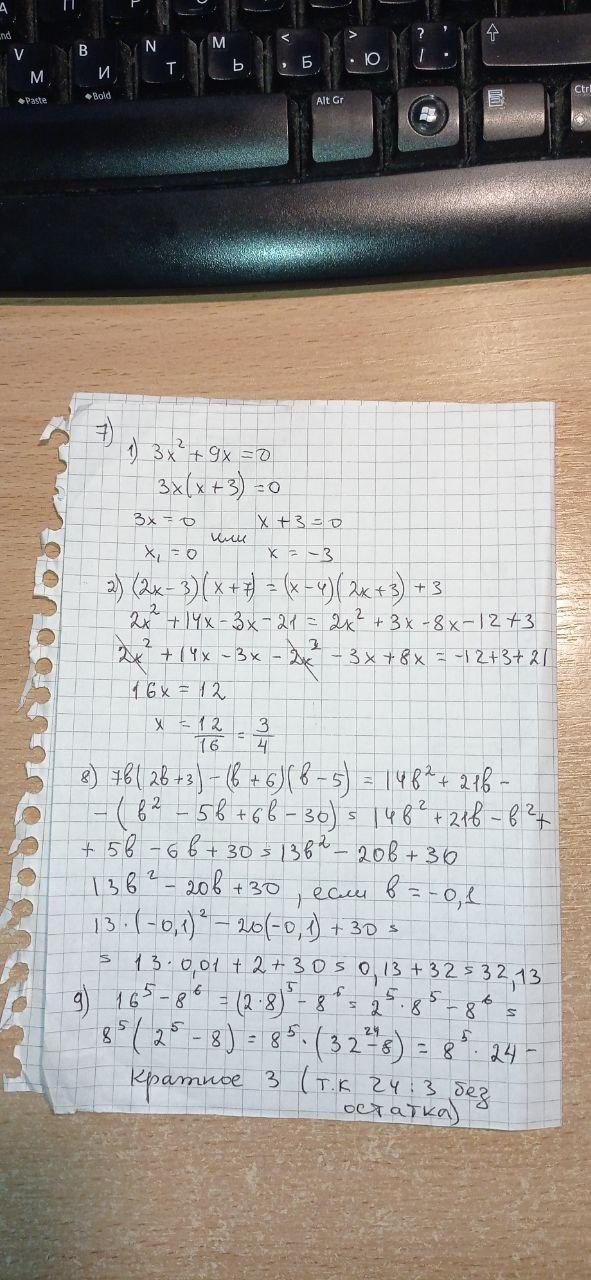 V М
◆Paste
В И
◆Bold
N Т
М Ь
< , Б
> . Ю
? ' / .
Alt Gr
Ctrl
7)
1) 3x² + 9x = 0
3x(x + 3) = 0
3x = 0 или x + 3 = 0
x₁ = 0 x = -3
2) (2x - 3)(x + 7) = (x - 4)(2x + 3) + 3
2x² + 14x - 3x - 21 = 2x² + 3x - 8x - 12 + 3
2x² + 14x - 3x - 2x² - 3x + 8x = -12 + 3 + 21
16x = 12
x = 12/16 = 3/4
8) 7в(2в + 3) - (в + 6)(в - 5) = 14в² + 21в -
- (в² - 5в + 6в - 30) = 14в² + 21в - в² +
+ 5в - 6в + 30 = 13в² - 20в + 30
13в² - 20в + 30, если в = -0,1
13 · (-0,1)² - 20(-0,1) + 30 =
= 13 · 0,01 + 2 + 30 = 0,13 + 32 = 32,13
9) 16⁵ - 8⁶ = (2·8)⁵ - 8⁶ = 2⁵ · 8⁵ - 8⁶ =
8⁵(2⁵ - 8) = 8⁵ · (32 - 8) 24 = 8⁵ · 24 -
кратное 3 (т.к 24 : 3 без
остатка)